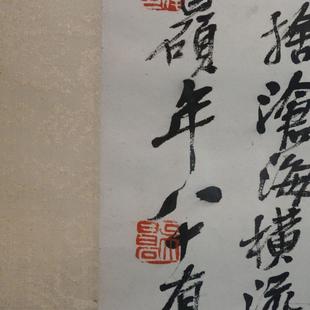 捨滄海橫流
碩年八十有